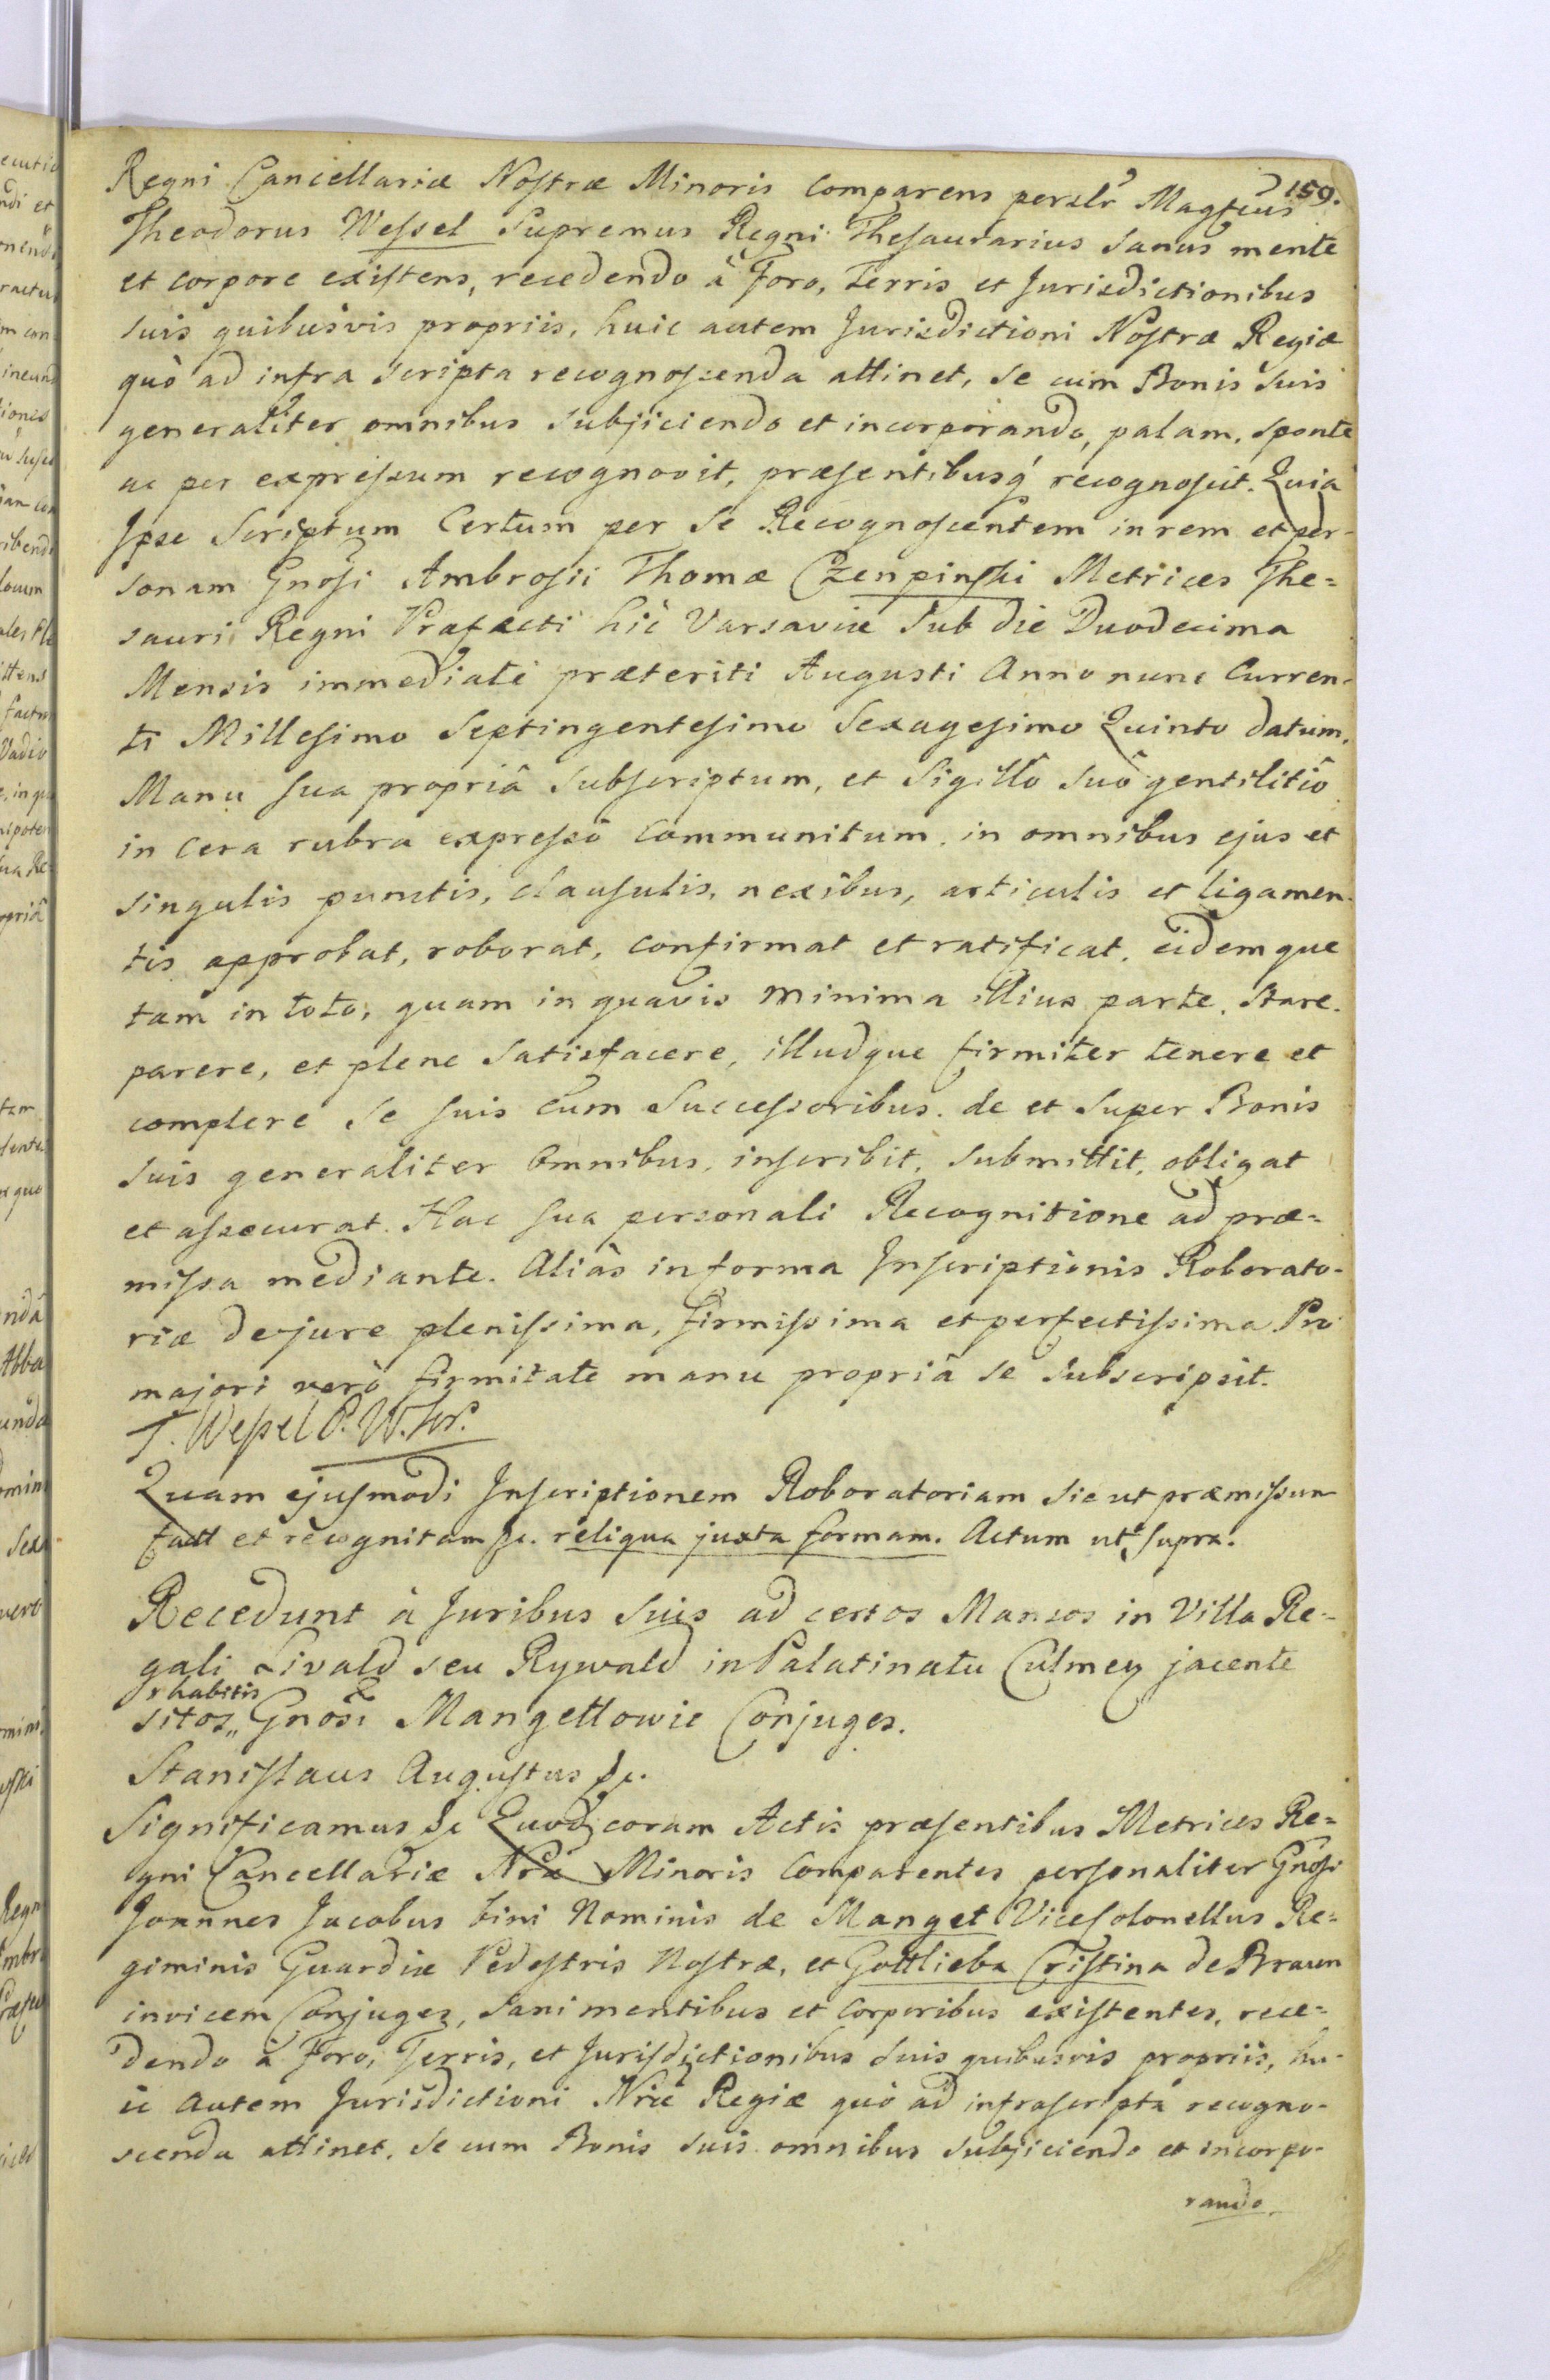 159.
Regni Cancellariæ Nostræ Minoris Comparens perslr Magfcus
Theodorus Wessel Supremus Regni Thesaurarius sanus mente
et corpore existens, recedendo à Foro, Terris et Jurisdictionibus
suis quibusvis propriis, huic autem Jurisdictioni Nostræ Regiæ
quò ad infra scripta recognoscenda attinet, se cum Bonis suis
generaliter omnibus subjiciendo et incorporando, palam, sponte
ac per expressum recognovit, præsentibusq́ recognoscit. Quia
Ipse Scriptum Certum per se Recognoscentem in rem et per-
sonam Gnosi Ambrosii Thomæ Czenpinski Metrices The=
sauri Regni Præfecti hìc Varsaviæ sub die Duodecima
Mensis immediatè præteriti Augusti Anno nunc Curren-
ti Millesimo Septingentesimo Sexagesimo Quinto datum.
Manu sua propriâ subscriptum, et Sigillô suô gentilitiô
in cera rubra expressô communitum, in omnibus ejus et
singulis punctis, clausulis, nexibus, articulis et ligamen-
tis approbat, roborat, confirmat et ratificat, eidemque
tam in toto, quam in quavis minima illius parte, stare.
parere, et plene satisfacere, illudque firmiter tenere et
complere se suis cum Successoribus. de et super Bonis
suis generaliter omnibus, inscribit, submittit, obligat
et assecurat. Hac sua personali Recognitione ad præ=
missa mediante. Aliàs in forma Inscriptionis Roborato-
riæ de jure plenissima, firmissima et perfectissima. Pro
majori verò firmitate manu propriâ se subscripsit.
T. Wessel P. W. kr.
Quam ejusmodi Inscriptionem Roboratoriam sic ut præmissum
factt et recognitam &c. reliqua juxta formam. Actum ut supra.
Recedunt à Juribus suis ad certos Mansos in Villa Re-
gali Livald seu Rywald in Palatinatu Culmen jacente
habitis
sitos „ Gnosi Mangettowie Conjuges.
Stanislaus Augustus &c.
Significamus &c Quod coram Actis præsentibus Metrices Re=
gni Cancellariæ Nræ Minoris Comparentes personaliter Gnosi
Joannes Jacobus bini Nominis de Manget Vicesolonellus Re=
giminis Guardiæ Pedestris Nostræ, et Gottlieba Cristina de Braun
invicem Conjuges, sani mentibus et corporibus existentes, rece=
dendo à Foro, Terris, et Jurisdictionibus suis quibusvis propriis, hu-
ic autem Jurisdictioni Nræ Regiæ quò ad infrascripta recogno-
scenda attinet. se cum Bonis suis omnibus subjiciendo et incorpo-
rando